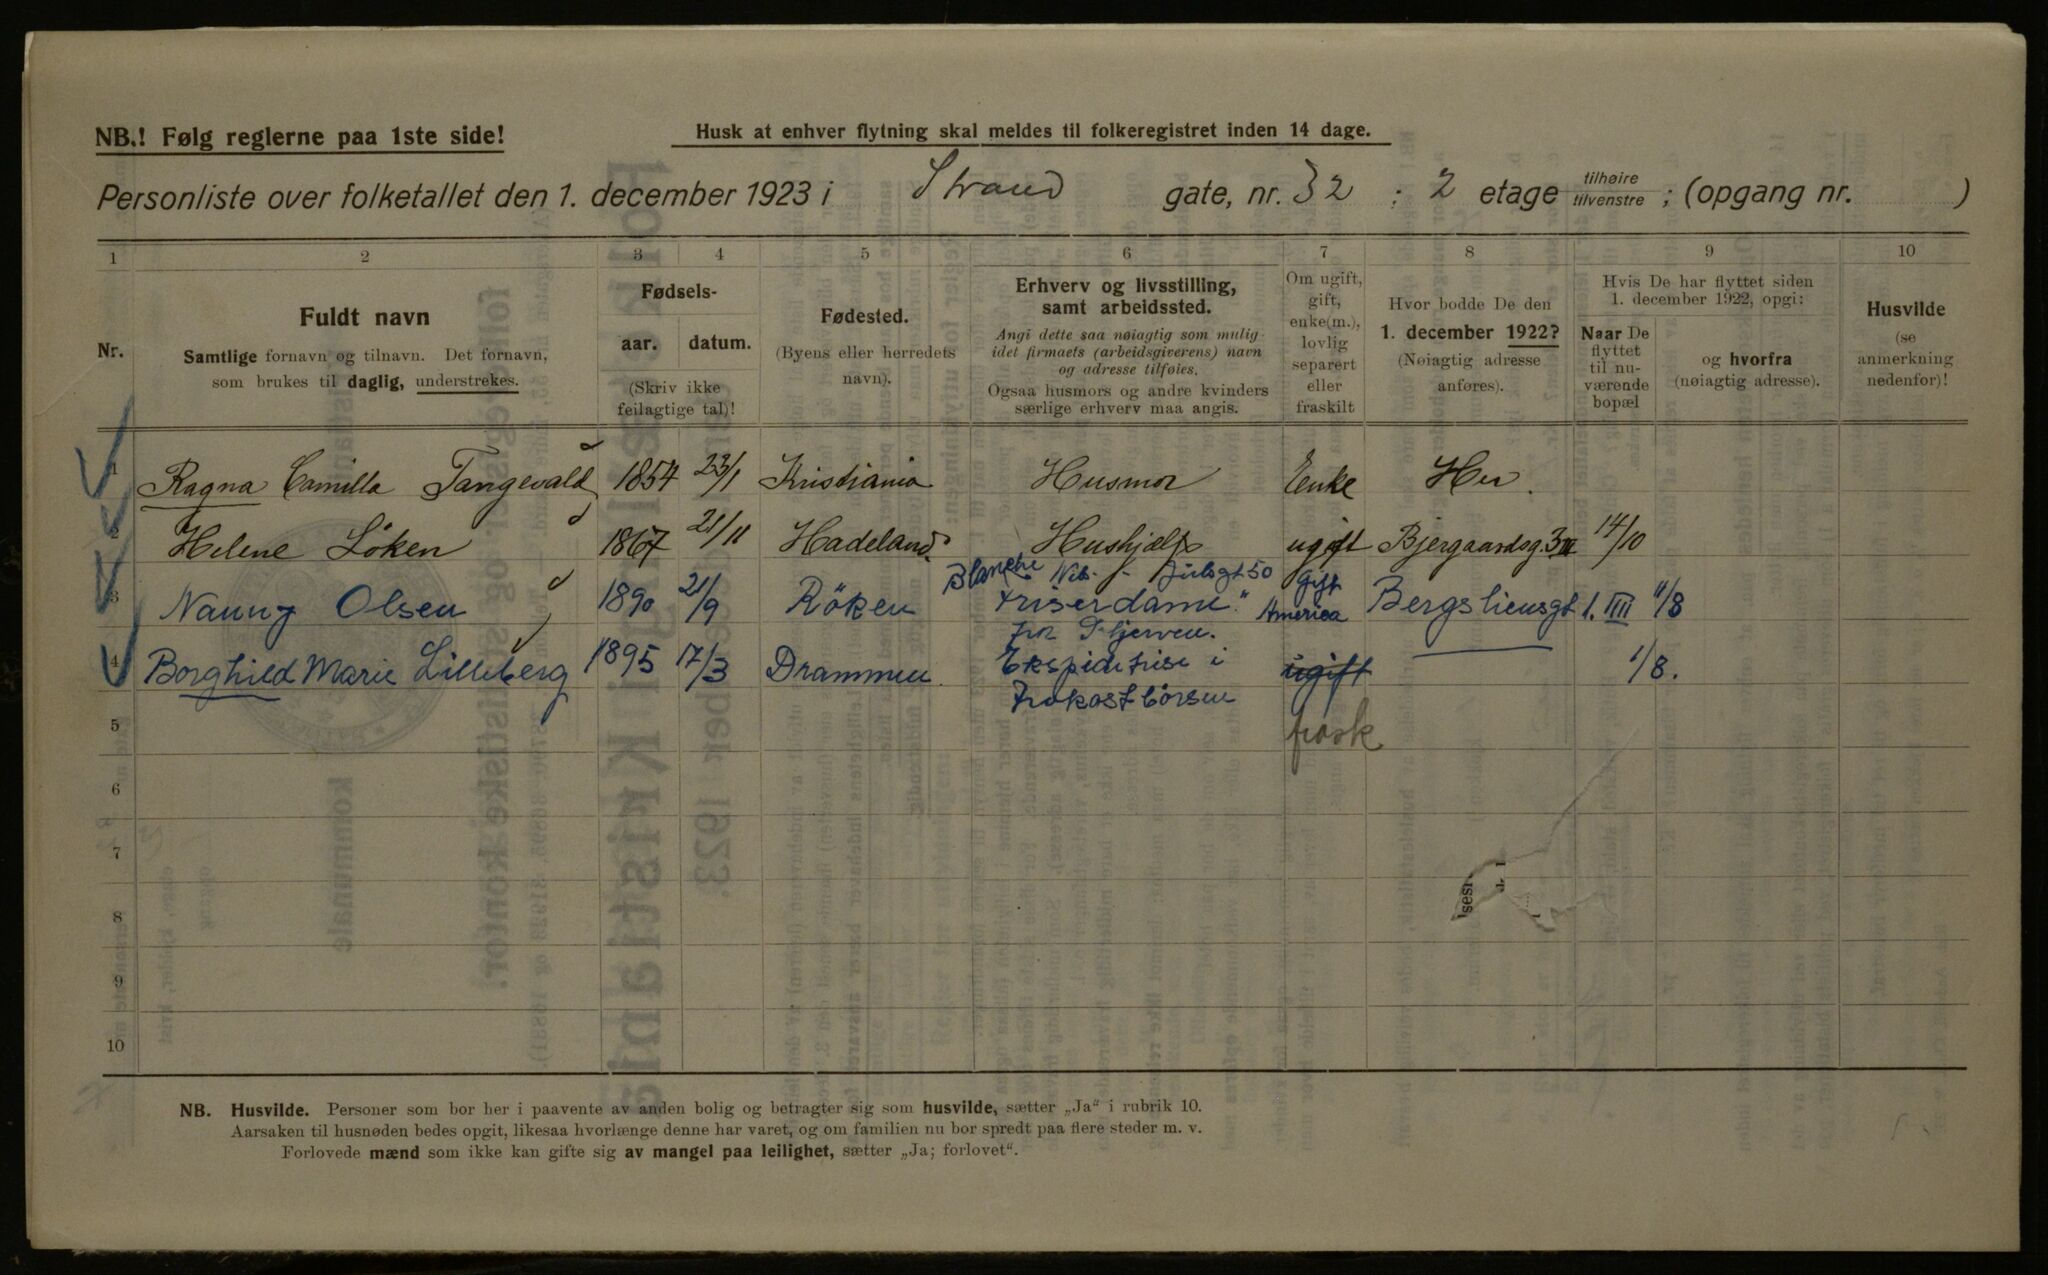 NB.! Følg reglerne paa 1ste side!
Husk at enhver flytning skal meldes til folkeregistret inden 14 dage.
Personliste over folketallet den 1. december 1923 i Strand gate, nr. 32 ; 2 etage tilhøire tilvenstre ; (opgang nr. )
1 2 3 4 5 6 7 8 9 10
Nr.
Fuldt navn
Samtlige fornavn og tilnavn. Det fornavn,
som brukes til daglig, understrekes.
Fødsels-
aar. datum.
(Skriv ikke
feilagtige tal)!
Fødested.
(Byens eller herredets
navn).
Erhverv og livsstilling,
samt arbeidssted.
Angi dette saa nøiagtig som mulig
idet firmaets (arbeidsgiverens) navn
og adresse tilføies.
Ogsaa husmors og andre kvinders
særlige erhverv maa angis.
Om ugift,
gift,
enke(m.),
lovlig
separert
eller
fraskilt
Hvor bodde De den
1. december 1922?
(Nøiagtig adresse
anføres).
Hvis De har flyttet siden
1. december 1922, opgi:
Naar De
flyttet
til nu-
værende
bopæl
og hvorfra
(nøiagtig adresse).
Husvilde
(se
anmerkning
nedenfor)!
1 Ragna Camilla Tangevald 1854 23/1 Kristiania Husmor Enke Her.
2 Helene Löken 1867 21/11 Hadeland Hushjælp ugift Bjergaardsg. 3 III 14/10
Blanche gift
3 Nanny Olsen 1890 21/9 Röken Friserdame America Bergsliensgt 1. IIII 11/8
4 Borghild Marie Lilleberg 1895 17/3 Drammen Ekspiditrise i ugift 1/8.
Frokostbörsen
5 frask
6
7
8
9
10
NB. Husvilde. Personer som bor her i paavente av anden bolig og betragter sig som husvilde, sætter „Ja“ i rubrik 10.
Aarsaken til husnøden bedes opgit, likesaa hvorlænge denne har varet, og om familien nu bor spredt paa flere steder m. v.
Forlovede mænd som ikke kan gifte sig av mangel paa leilighet, sætter „Ja; forlovet“.